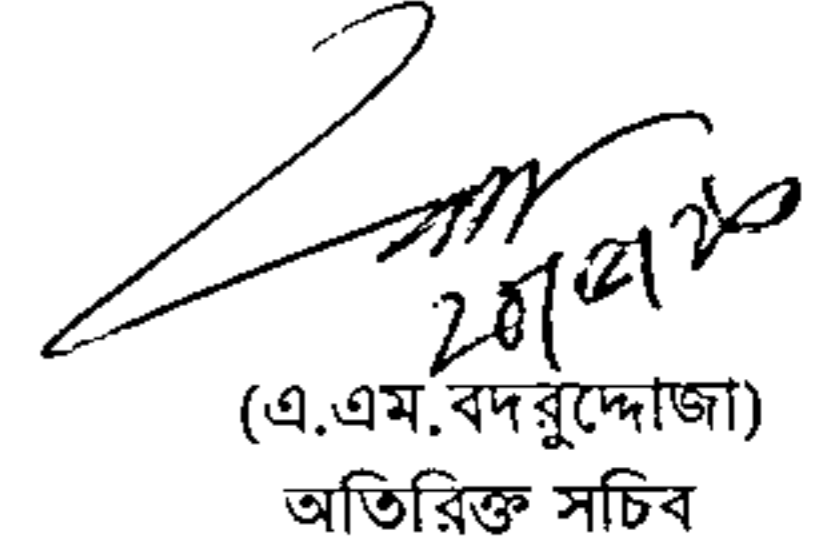 (এ.এম.বদরুদ্দোজা)
অতিরিক্ত সচিব